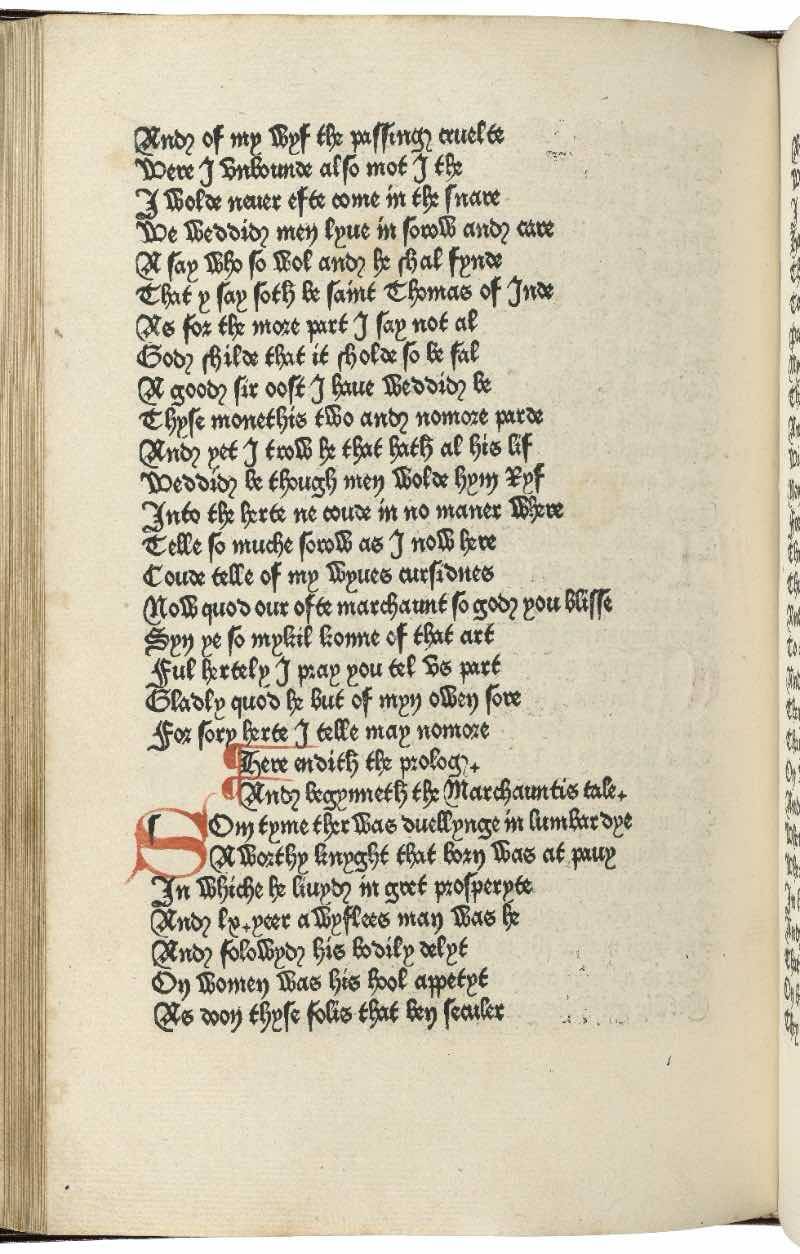 And of my wyf the passing cruelte
Were I vnbounde also mot I the
I wolde neuer efte come in the snare
We weddid men lyue in sorow and care
A say who so wol and he shal fynde
That y say soth be saint Thomas of Inde
As for the more part I say not al
God shilde that it sholde so be fal
A good sir oost I haue weddid be
Thyse monethis two and nomore parde
And yet I trow he that hath al his lif
Weddid be though men wolde hym Ryf
Into the herte ne coude in no maner where
Telle so muche sorow as I now here
Coude telle of my wyues cursidnes
Now quod our ofte marchaunt so god you blisse
Syn ye so mykil konne of that art
Ful hertely I pray you tel vs part
Gladly quod he but of myn owen sore
For sory herte I telle may nomore
¶ Here endith the prolog.
¶ And begynneth the Marchauntis tale.
SOm tyme ther was duellynge in lumbardye
A worthy knyght that born was at pauy
In whiche he liuyd in gret prosperyte
And lx. yeer a wyflees man was he
And folowyd his bodily delyt
On women was his hool appetyt
As doon thyse folis that ben seculer